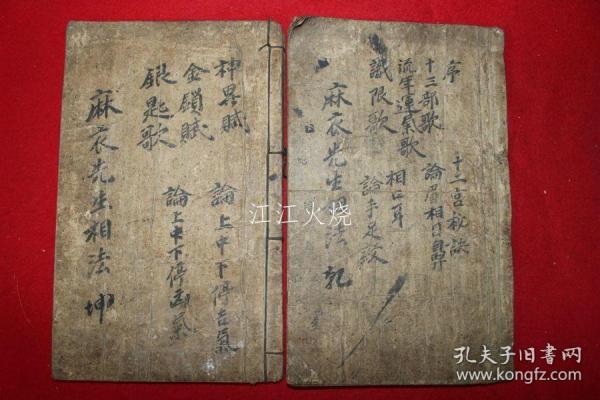 序
十二宮秘訣
十三部歌
論眉相目鼻
流年運氣歌
相口耳
識限歌
論手足紋
麻衣先生相法 乾
神異賦
論上中下停吉氣
金鎖賦
論上中下停凶氣
銀匙歌
麻衣先生相法 坤
江江火烧
孔夫子旧书网
www.kongfz.com